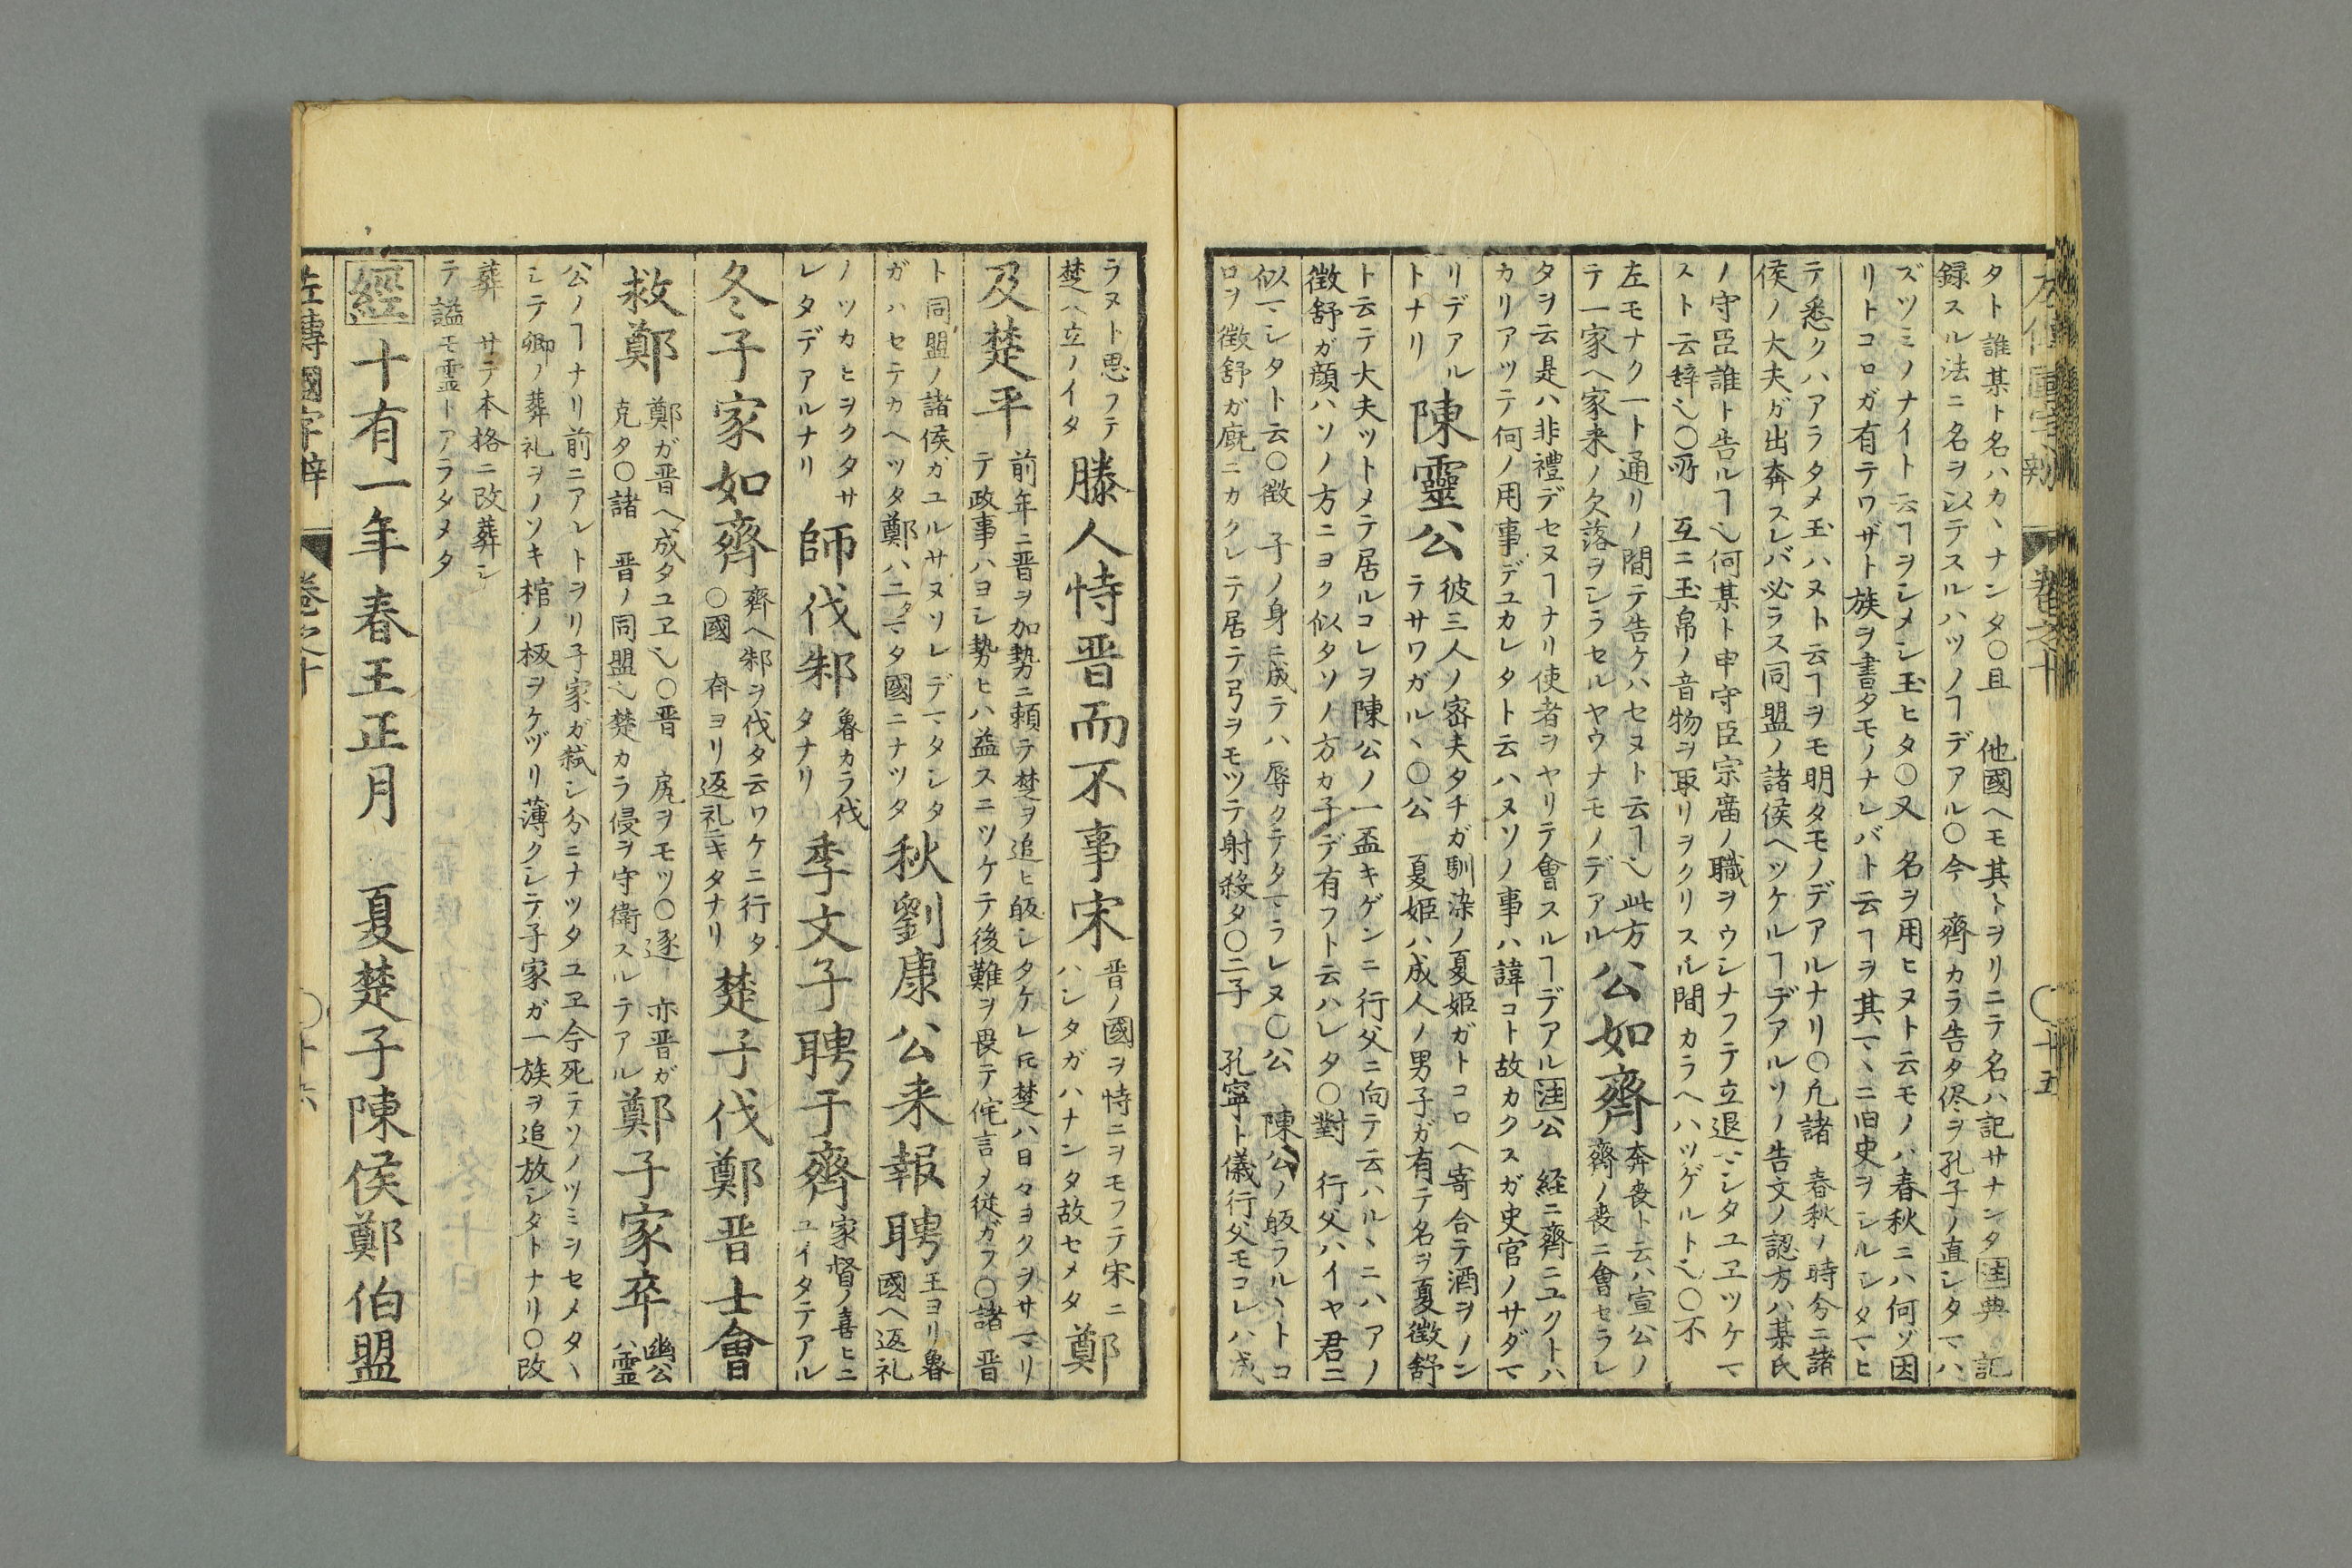 左傳國字辨 巻之十 〇十五
タト誰某ト名ハカヽナンタ〇且 他國ヘモ其トヲリニテ名ハ記サナンタ注典 記
録スル法ニ名ヲ以テスルハツノヿデアル〇今 齊カラ告タ侭ヲ孔子ノ直シタマハ
ズツミノナイト云ヿヲシメシ玉ヒタ〇又 名ヲ用ヒヌト云モノハ春秋ニハ何ゾ因
リトコロガ有テワザト族ヲ書タモノナレバト云ヿヲ其マヽニ旧史ヲシルシタマヒ
テ悉クハアラタメ玉ハヌト云ヿヲモ明タモノデアルナリ〇凢諸 春秋ノ時分ニ諸
侯ノ大夫ガ出奔スレバ必ラス同盟ノ諸侯ヘツケルヿデアルソノ告文ノ認方ハ某氏
ノ守臣誰ト告ルヿ也何某ト申守臣宗庿ノ職ヲウシナフテ立退マシタユヱツケマ
スト云辞也〇所 互ニ玉帛ノ音物ヲ取リヲクリスル間カラヘハツゲルト也〇不
左モナク一ト通リノ間テ告ケハセヌト云ヿ也此方公如齊奔喪ト云ハ宣公ノ
テ一家ヘ家来ノ欠落ヲシラセルヤウナモノデアル 齊ノ喪ニ會セラレ
タヲ云是ハ非禮デセヌヿナリ使者ヲヤリテ會スルヿデアル注公 経ニ齊ニユクトハ
カリアツテ何ノ用事デユカレタト云ハヌソノ事ハ諱コト故カクスガ史官ノサダマ
リデアル陳靈公彼三人ノ密夫タチガ馴染ノ夏姫ガトコロヘ寄合テ酒ヲノン
トナリ テサワガルヽ〇公 夏姫ハ成人ノ男子ガ有テ名ヲ夏徴舒
ト云テ大夫ツトメテ居ルコレヲ陳公ノ一盃キゲンニ行父ニ向テ云ハルヽニハアノ
徴舒ガ顔ハソノ方ニヨク似タソノ方カ子デ有フト云ハレタ〇對 行父ハイヤ君ニ
似マシタト云〇徴 子ノ身ニ成テハ辱クテタマラレヌ〇公 陳公ノ皈ラルヽトコ
ロヲ徴舒ガ廐ニカクレテ居テ弓ヲモツテ射殺タ〇二子 孔寧ト儀行父モコレハ成
ラヌト思フテ滕人恃晋而不事宋晋ノ國ヲ恃ニヲモフテ宋ニ鄭
楚ヘ立ノイタ ハシタガハナンタ故セメタ
及楚平前年ニ晋ヲ加勢ニ頼テ楚ヲ追ヒ皈シタケレ𪜈楚ハ日々ヨクヲサマリ
テ政事ハヨシ勢ヒハ益スニツケテ後難ヲ畏テ侘言ノ従ガフ〇諸 晋
ト同盟ノ諸侯ガユルサヌソレデマタシタ秋劉康公来報聘王ヨリ魯
ガハセテカヘツタ鄭ハ二タマタ國ニナツタ 國ヘ返礼
ノツカヒヲクタサ師伐邾魯カラ伐季文子聘于齊家督ノ喜ヒニ
レタデアルナリ タナリ ユイタテアル
冬子家如齊齊ヘ邾ヲ伐タ云ワケニ行タ楚子伐鄭晋士會
〇國 夲ヨリ返礼ニキタナリ
救鄭鄭ガ晋ヘ成タユヱ也〇晋 尻ヲモツ〇逐 亦晋ガ鄭子家卒幽公
克タ〇諸 晋ノ同盟也楚カラ侵ヲ守衛スルテアル ハ霊
公ノヿナリ前ニアレトヲリ子家ガ弑シ分ニナツタユヱ今死テソノツミヲセメタヽ
シテ卿ノ葬礼ヲノソキ棺ノ板ヲケヅリ薄クシテ子家ガ一族ヲ追放シタトナリ〇改
葬 サテ本格ニ改葬シ
テ謚モ霊トアラタメタ
經十有一年春王正月 夏楚子陳侯鄭伯盟
左傳國字辨 巻之十 〇十六